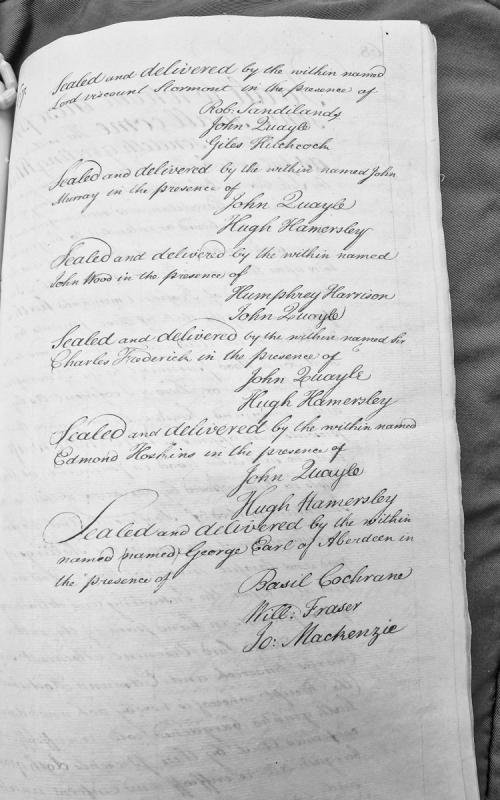 Sealed and delivered by the within named
Lord viscount Stormont in the presence of
Rob: Sandilands
John Quayle
Giles Hitchcock
Sealed and delivered by the within named John
Murray in the presence of
John Quayle
Hugh Hamersley
Sealed and delivered by the within named
John Wood in the presence of
Humphrey Harrison
John Quayle
Sealed and delivered by the within named Sir
Charles Frederick in the presence of
John Quayle
Hugh Hamersley
Sealed and delivered by the within named
Edmond Hoskins in the presence of
John Quayle
Hugh Hamersley
Sealed and delivered by the within
named (named) George Earl of Aberdeen in
the presence of
Basil Cochrane
Will: Fraser
Jo: Mackenzie